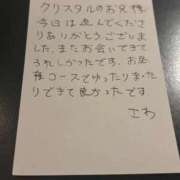 クリスタルのお兄様
今日は遊んでくださ
りありがとうございま
した。またお会いできて
うれしかったです。お昼
寝コースでゆったりまった
りできて良かったです
さわ